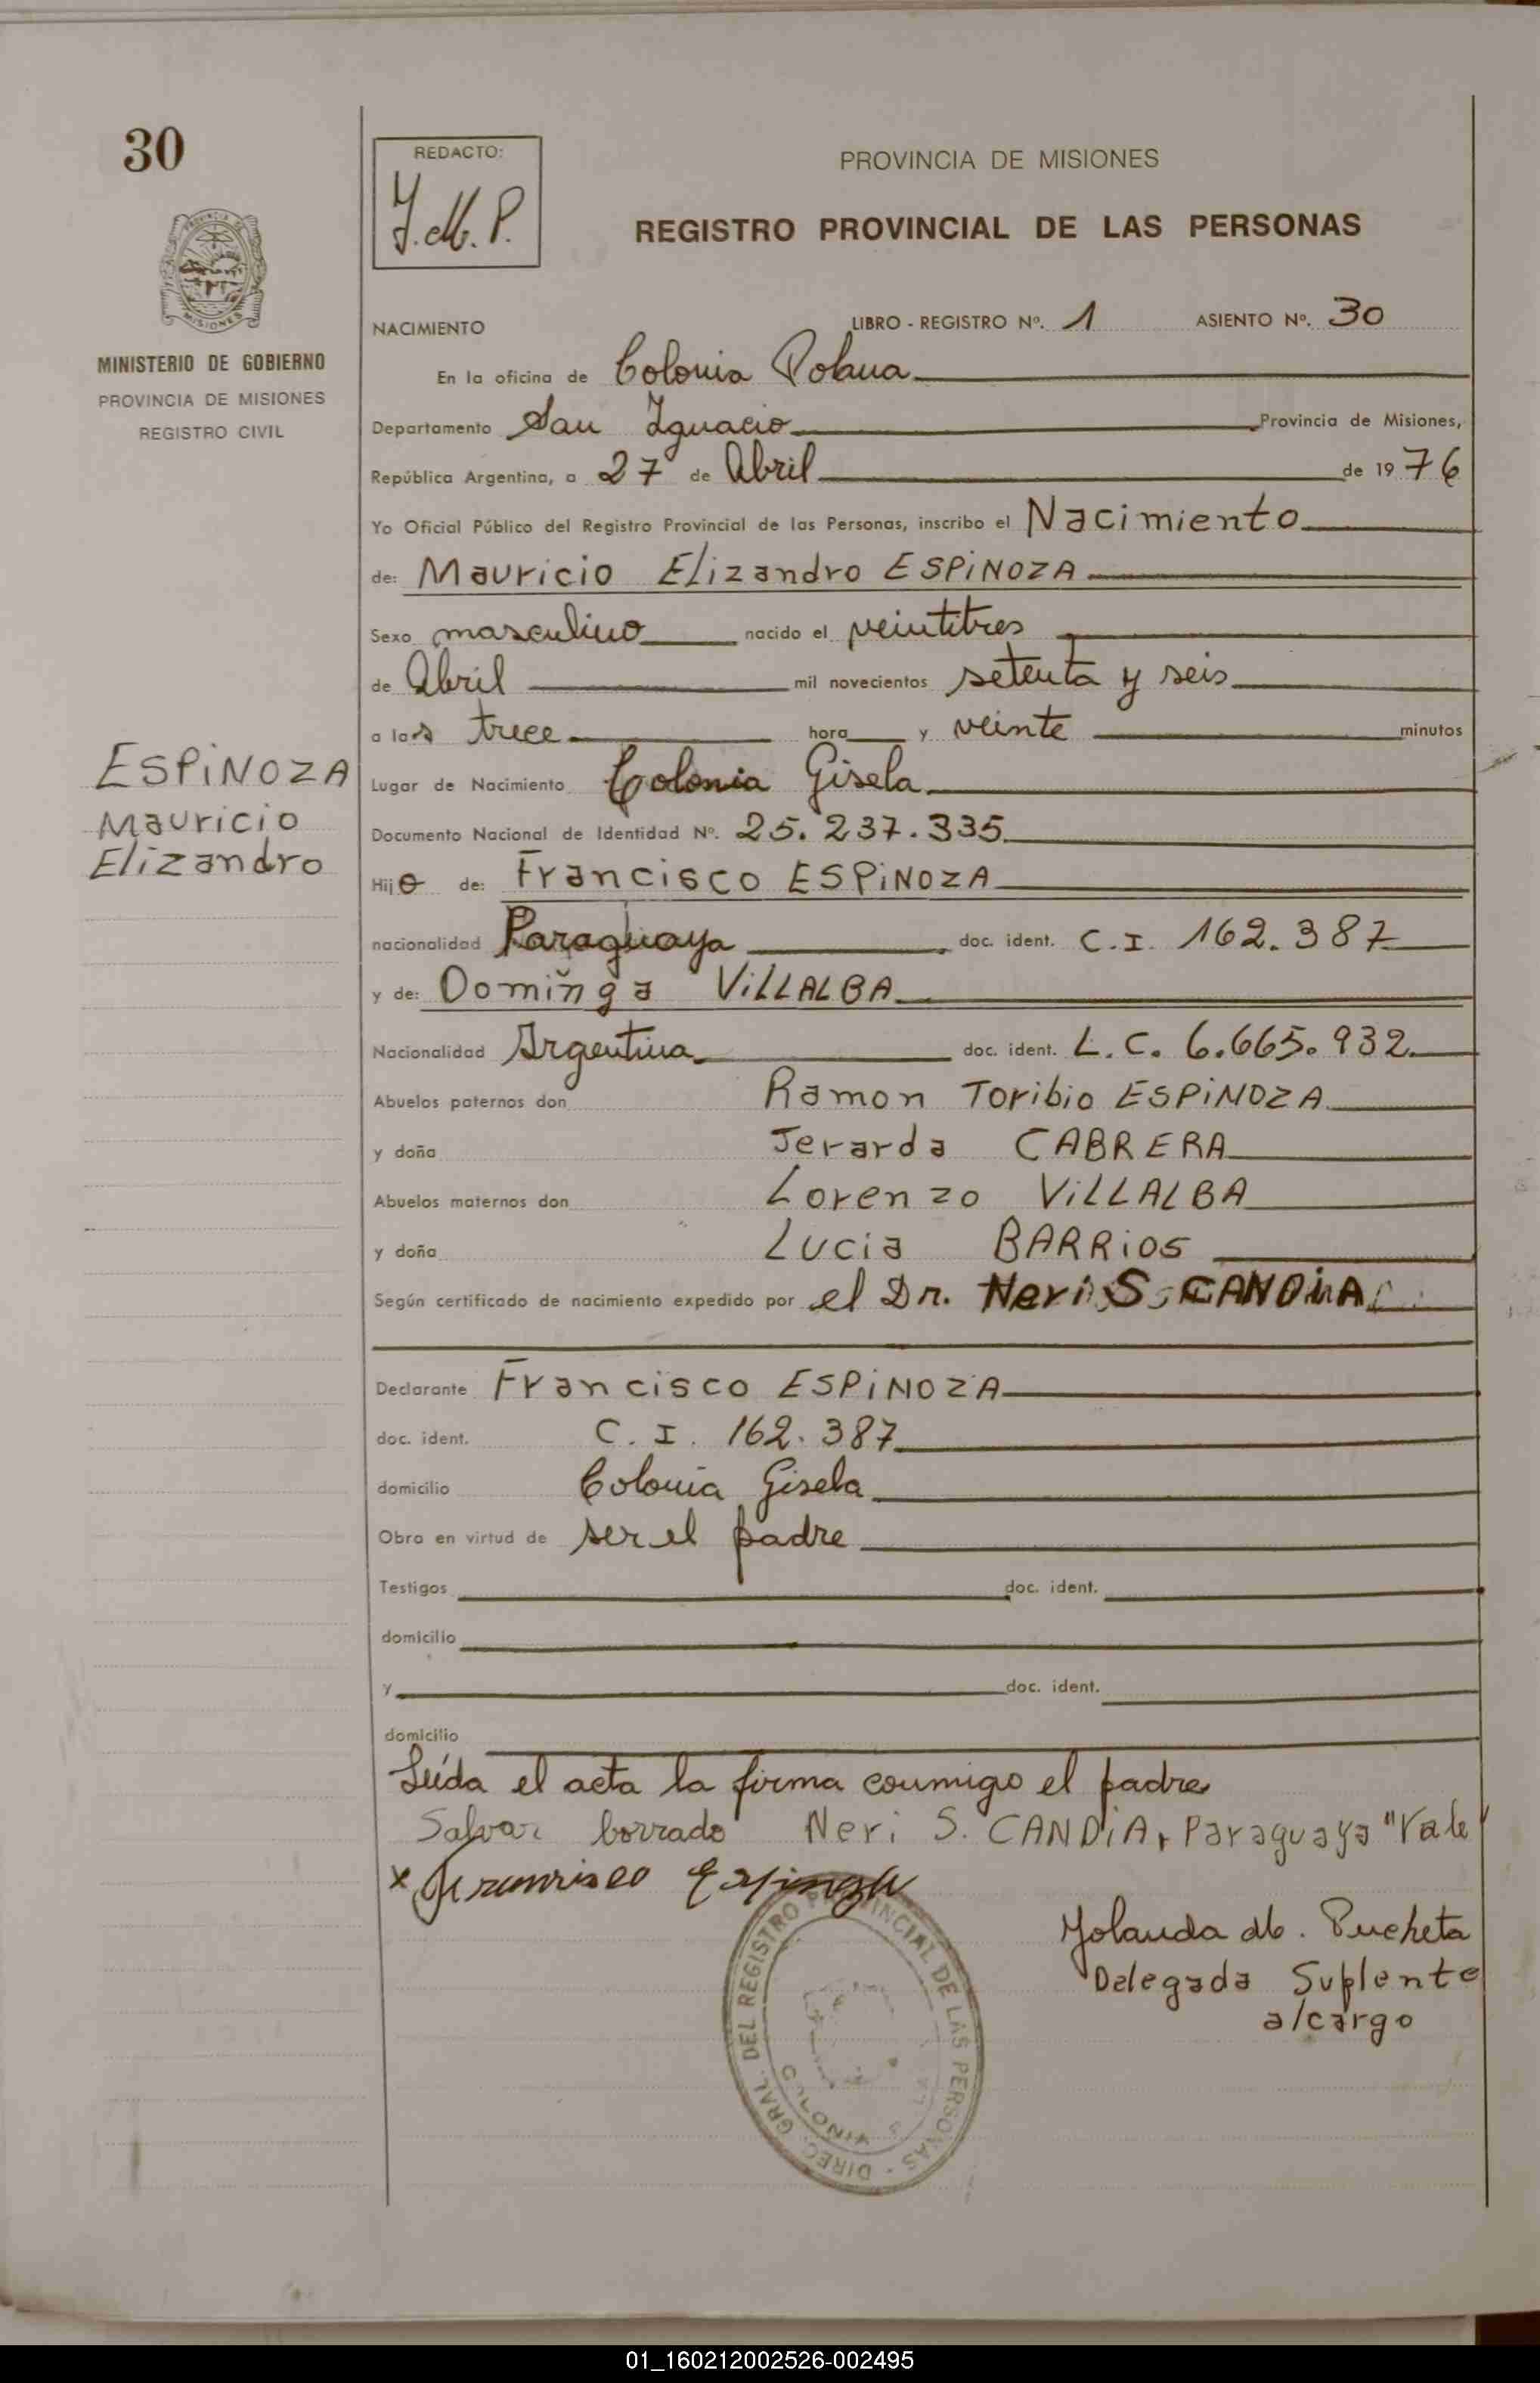 30
REDACTO:
Y.M.P.
PROVINCIA DE MISIONES
REGISTRO PROVINCIAL DE LAS PERSONAS
PROVINCIA DE
MISIONES
MINISTERIO DE GOBIERNO
PROVINCIA DE MISIONES
REGISTRO CIVIL
ESPINOZA
Mauricio
Elizandro
NACIMIENTO LIBRO - REGISTRO Nº. 1 ASIENTO Nº. 30
En la oficina de Colonia Polana
Departamento San Ignacio Provincia de Misiones,
República Argentina, a 27 de Abril de 1976
Yo Oficial Público del Registro Provincial de las Personas, inscribo el Nacimiento
de: Mauricio Elizandro ESPINOZA
Sexo masculino nacido el veintitres
de Abril mil novecientos setenta y seis
a las trece hora y veinte minutos
Lugar de Nacimiento Colonia Gisela
Documento Nacional de Identidad Nº. 25.237.335
Hijo de: Francisco ESPINOZA
nacionalidad Paraguaya doc. ident. C.I. 162.387
y de: Dominga VILLALBA
Nacionalidad Argentina doc. ident. L.C. 6.665.932
Abuelos paternos don Ramon Toribio ESPINOZA
y doña Jerarda CABRERA
Abuelos maternos don Lorenzo VILLALBA
y doña Lucia BARRIOS
Según certificado de nacimiento expedido por el Dr. Neri S. CANDIA
Declarante Francisco ESPINOZA
doc. ident. C.I. 162.387
domicilio Colonia Gisela
Obra en virtud de ser el padre
Testigos doc. ident.
domicilio
y doc. ident.
domicilio
Leída el acta la firma conmigo el padre
Salvar borrado Neri S. CANDIA, Paraguaya "Vale"
x Francisco Espinoza
DIREC. GRAL. DEL REGISTRO PROVINCIAL DE LAS PERSONAS -
COLONIA
Yolanda M. Pucheta
Delegada Suplente
a/cargo
01_160212002526-002495